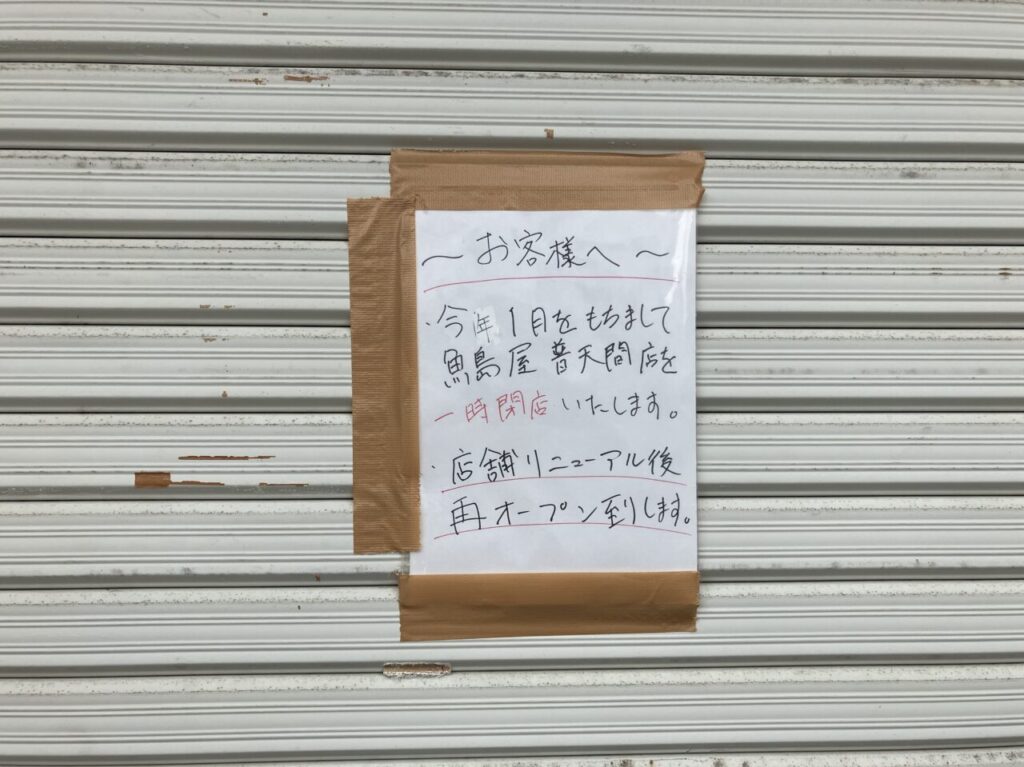 ～お客様へ～
・今年1月をもちまして
魚島屋 普天間店を
一時閉店いたします。
・店舗リニューアル後
再オープン到します。